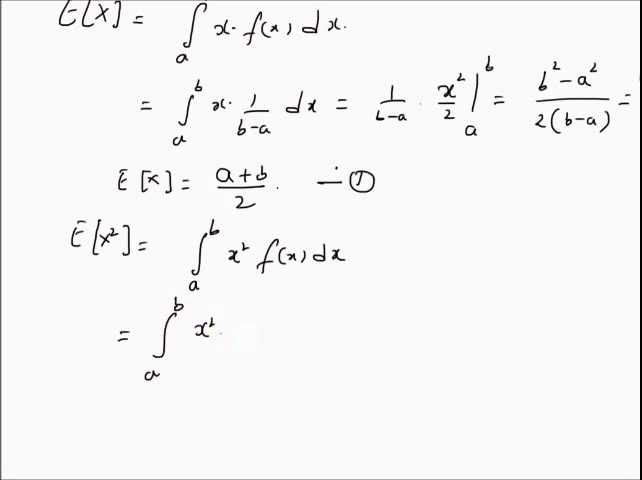 E[X] = ∫ₐ x· f(x) dx.
= ∫ₐᵇ x· 1/(b-a) dx = 1/(b-a) · x²/2 |ₐᵇ = (b²-a²)/(2(b-a)) =
E[x] = (a+b)/2. — ①
E[x²] = ∫ₐᵇ x² f(x) dx
= ∫ₐᵇ x²·